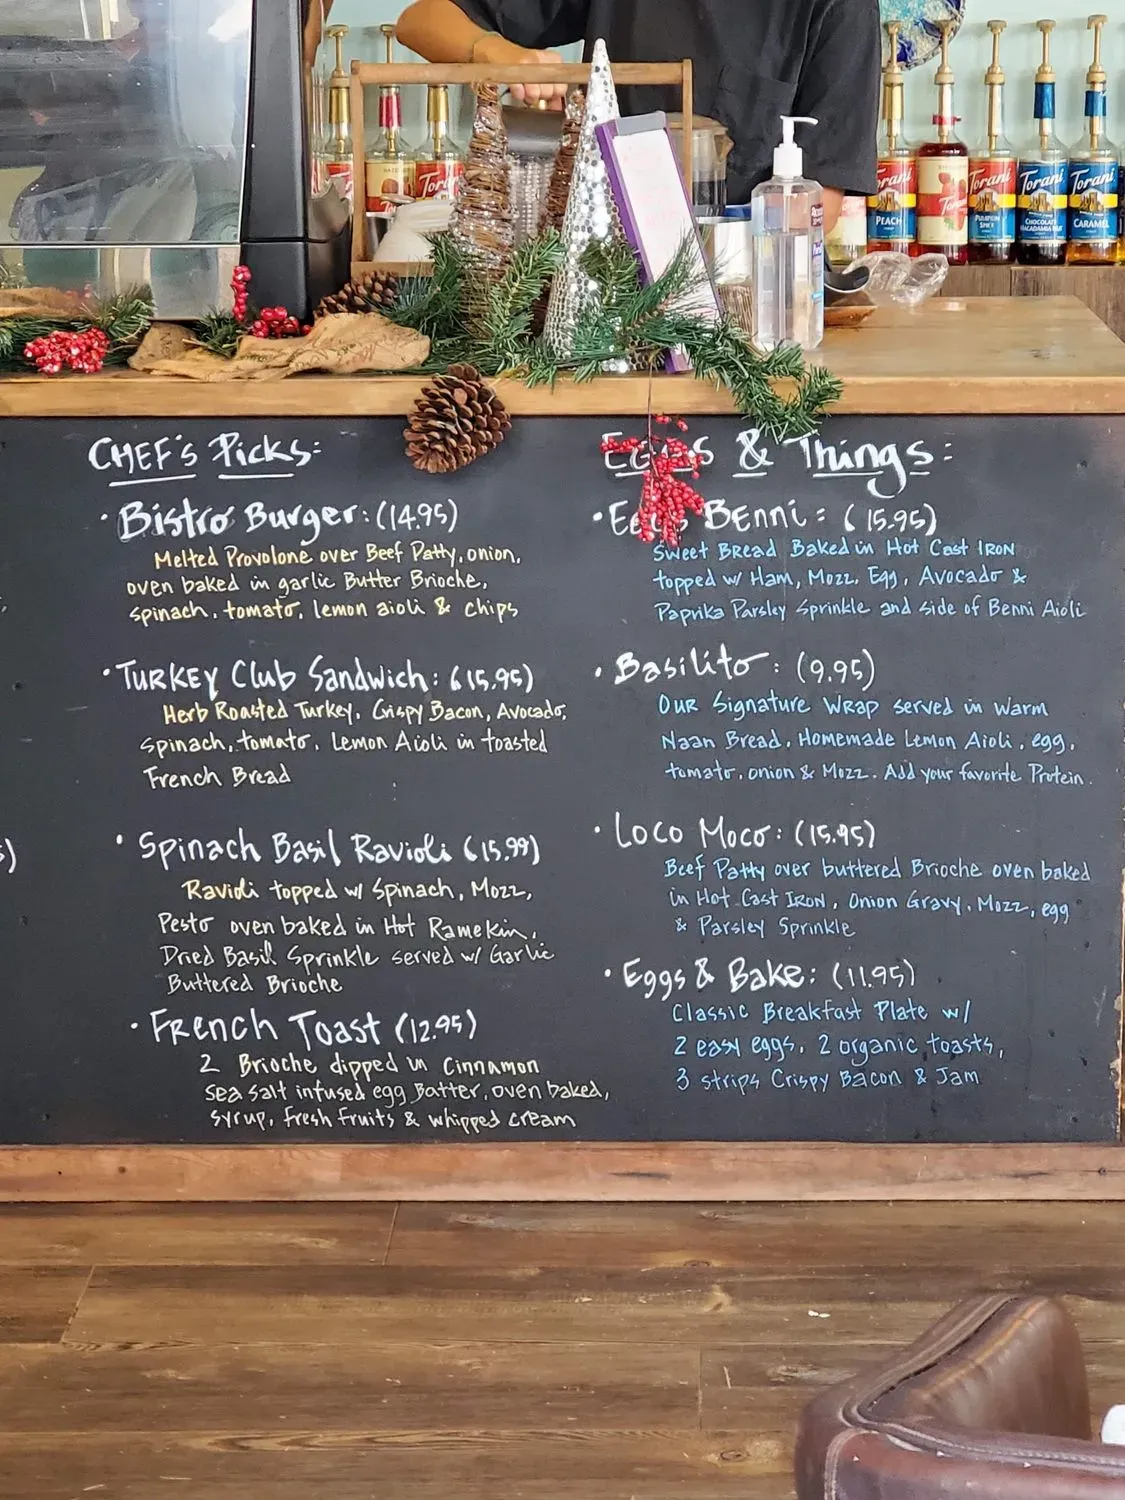 Torani
Torani
PEACH
Torani
Torani
PUMPKIN SPICE
Torani
CHOCOLATE MACADAMIA NUT
Torani
CARAMEL
CHEF'S Picks:
• Bistro Burger: (14.95)
Melted Provolone over Beef Patty, onion,
oven baked in garlic Butter Brioche,
spinach, tomato, lemon aioli & chips
• TURKEY Club Sandwich: (15.95)
Herb Roasted Turkey, Crispy Bacon, Avocado,
spinach, tomato, Lemon Aioli in toasted
French Bread
• Spinach Basil Ravioli (15.99)
Ravioli topped w/ Spinach, Mozz,
Pesto oven baked in Hot Ramekin,
Dried Basil Sprinkle served w/ Garlic
Buttered Brioche
• FRENCH TOAST (12.95)
2 Brioche dipped in Cinnamon
Sea salt infused egg Batter, oven baked,
syrup, fresh fruits & whipped cream
Eggs & Things:
• Eggs BENNI: (15.95)
Sweet Bread Baked in Hot Cast IRON
topped w/ Ham, Mozz, Egg, Avocado &
Paprika Parsley Sprinkle and side of Benni Aioli
• Basilito: (9.95)
OUR Signature WRAP served in warm
Naan Bread, Homemade Lemon Aioli, egg,
tomato, onion & Mozz. Add your favorite Protein.
• Loco Moco: (15.95)
Beef Patty over buttered Brioche oven baked
in Hot Cast IRON, Onion Gravy, Mozz, egg
& Parsley Sprinkle
• Eggs & Bake: (11.95)
Classic Breakfast Plate w/
2 easy eggs, 2 organic toasts,
3 strips Crispy Bacon & Jam